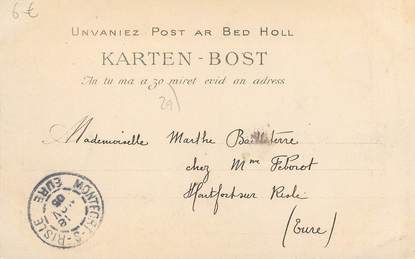 6 €
UNVANIEZ POST AR BED HOLL
KARTEN-BOST
An tu ma a zo miret evid an adress
29)
Mademoiselle Marthe
chez Mme
Montfort sur Risle
(Eure)
MONTFORT-S-RISLE
EURE